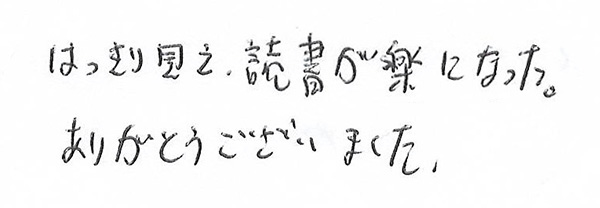 はっきり見え、読書が楽になった。
ありがとうございました。